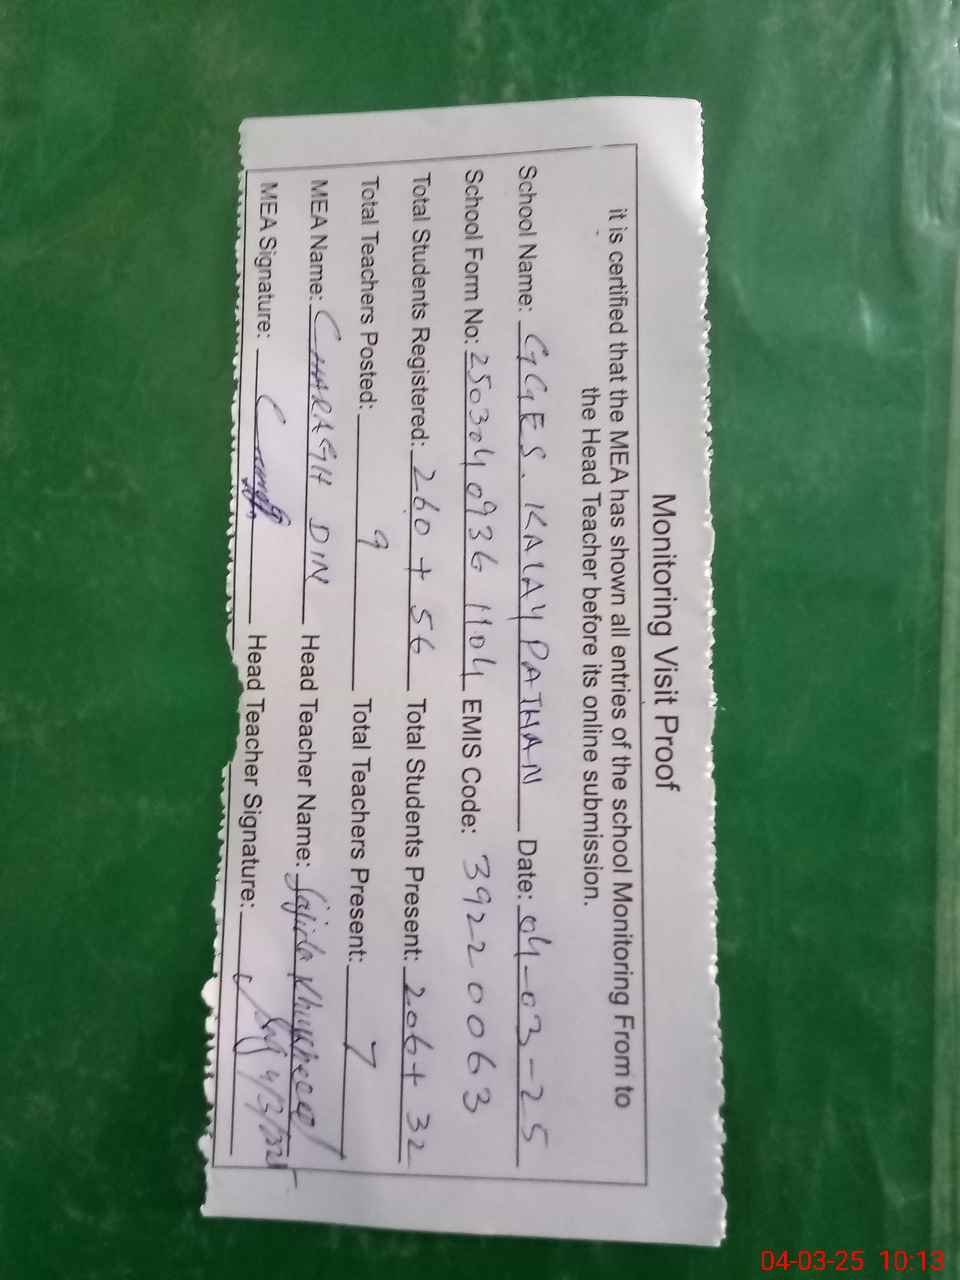 Monitoring Visit Proof
it is certified that the MEA has shown all entries of the school Monitoring From to
the Head Teacher before its online submission.
School Name: GGES. KALAY PATHAN Date: 04-03-25
School Form No: 250304 0936 1104 EMIS Code: 39220063
Total Students Registered: 260 + 56 Total Students Present: 206 + 32
Total Teachers Posted: 9 Total Teachers Present: 7
MEA Name: CHARAGH DIN Head Teacher Name: Sajida
MEA Signature: Head Teacher Signature: 4/3/2025
04-03-25 10:13